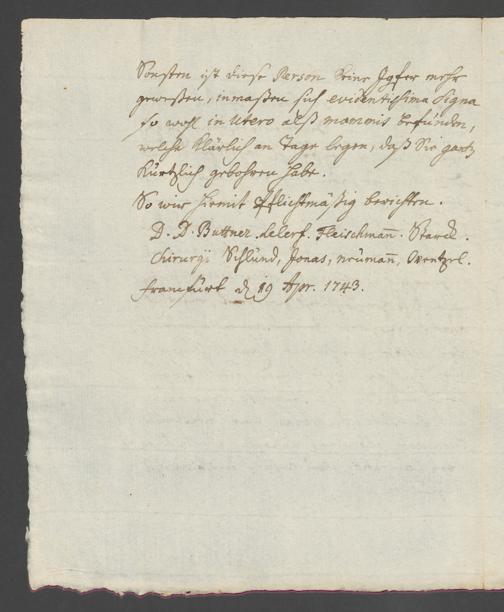 Sonsten ist diese Person keine Jgfer mehr
geweßen, inmaßen sich evidentissima signa
so wohl in utero alß mammis befunden,
welche klärlich an Tage legen, daß Sie gantz
kürtzlich gebohren habe.
So wir hiemit pflichtmäßig berichten.
D. D. Buttner. Lelerf. Fleischman̅. Starck.
Chirurgi Schlund, Jonas, Neuman̅, Wentzel.
Francfurt d. 19 Apr. 1743.